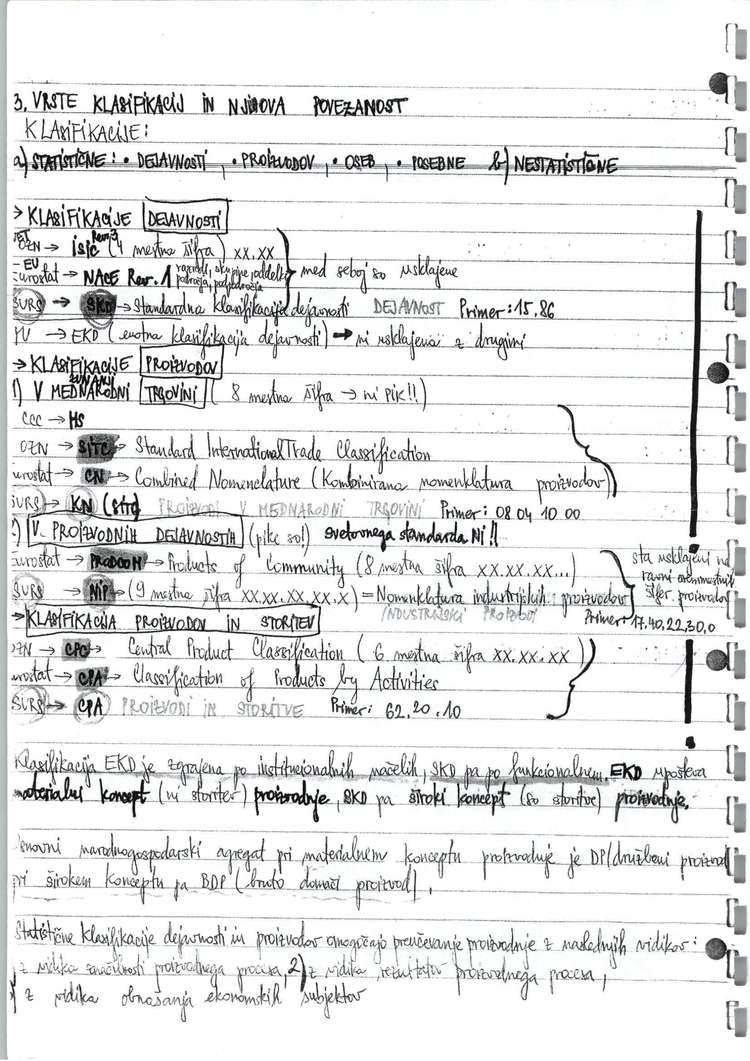 3. VRSTE KLASIFIKACIJ IN NJIHOVA POVEZANOST
KLASIFIKACIJE:
a) STATISTIČNE: • DEJAVNOSTI, • PROIZVODOV, • OSEB, • POSEBNE b) NESTATISTIČNE
→ KLASIFIKACIJE DEJAVNOSTI
OZN → isic Rev.3 (4 mestna šifra) xx.xx
EU
Eurostat → NACE Rev. 1 razredi, skupine, oddelki področja, podpodročja med seboj so usklajene
SURS → SKD → Standardna klasifikacija dejavnosti DEJAVNOST Primer: 15,86
→ EKD (enotna klasifikacija dejavnosti) → ni usklajena z drugimi
→ KLASIFIKACIJE PROIZVODOV
1) V MEDNARODNI ZUNANJI TRGOVINI (8 mestna šifra → ni PIK!!)
CCC → HS
OZN → SITC → Standard International Trade Classification
Eurostat → CN → Combined Nomenclature (Kombinirana nomenklatura proizvodov)
SURS → KN PROIZVODI V MEDNARODNI TRGOVINI Primer: 08 04 10 00
2) V PROIZVODNIH DEJAVNOSTIH (pike so!) svetovnega standarda Ni!!
Eurostat → PRODCOM → Products of Community (8 mestna šifra xx.xx.xx...) sta usklajeni na
SURS → NIP → (9 mestna šifra xx.xx.xx.xx.x) = Nomenklatura industrijskih proizvodov ravni osemmestnih
INDUSTRIJSKI PROIZVODI šifer. proizvodov
Primer: 17,40,22,30,0
→ KLASIFIKACIJA PROIZVODOV IN STORITEV
OZN → CPC → Central Product Classification (6 mestna šifra xx.xx.xx)
Eurostat → CPA → Classification of Products by Activities
SURS → CPA PROIZVODI IN STORITVE Primer: 62,20,10
Klasifikacija EKD je zgrajena po institucionalnih načelih, SKD pa po funkcionalnem. EKD upošteva
materialni koncept (ni storitev) proizvodnje, SKD pa široki koncept (so storitve) proizvodnje.
Osnovni narodnogospodarski agregat pri materialnem konceptu proizvodnje je DP (družbeni proizvod)
pri širokem konceptu pa BDP (bruto domači proizvod).
Statistične klasifikacije dejavnosti in proizvodov omogočajo preučevanje proizvodnje z naslednjih vidikov:
z vidika značilnosti proizvodnega procesa, 2) z vidika rezultatov proizvodnega procesa,
z vidika obnašanja ekonomskih subjektov